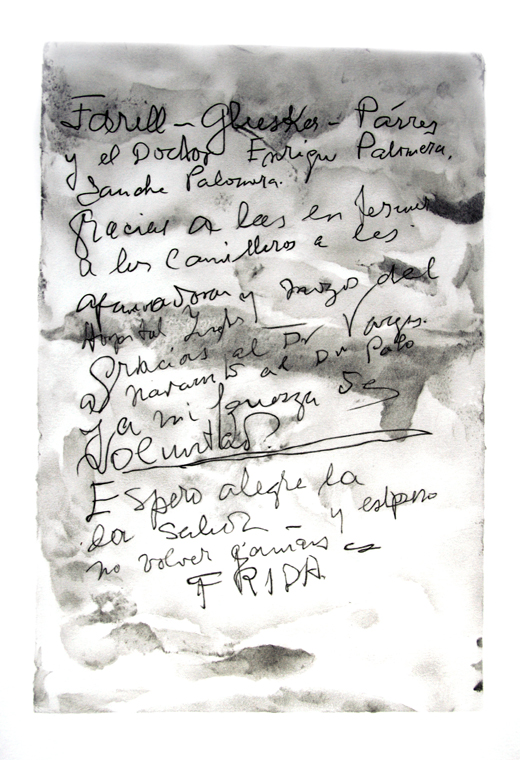 Farill – Glusker – Párres
y el Doctor Enrique Palomera,
Sanche Palomera.
Gracias a las enfermer
a los Camilleros a las
afanadoras y mozos del
Hospital Inglés –
Gracias al Dr Vargas.
a Navarro al Dr Polo
y a mi fuerza de
Voluntad.
Espero alegre la
la salida – y espero
no volver jamas
FRIDA